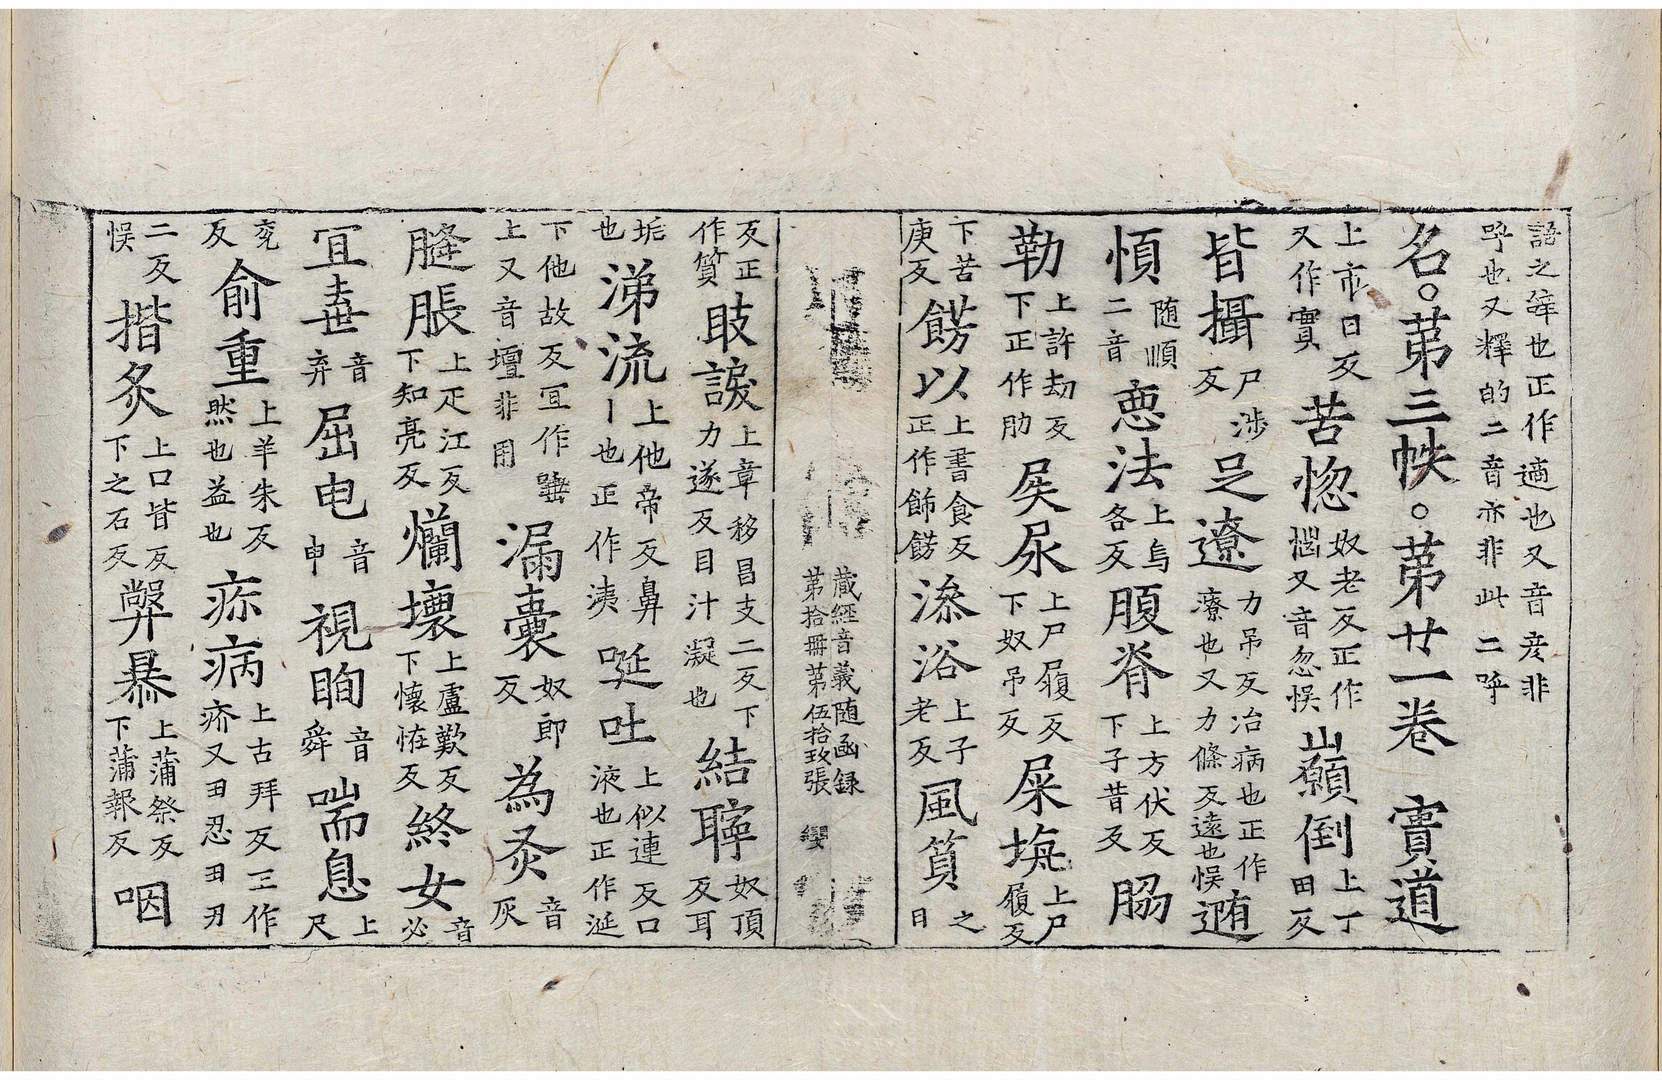 語之𢓜也正作適也又音彦非
呼也又釋的二音亦非此二呼
名。苐三帙。苐廿一卷 實道
上市日反又作實 苦惚 奴老反正作惱又音忽悮 巔倒 上丁田反
皆攝 尸涉反 足遼 力吊反冶病也正作療也又力條反遠也悮 𨓍
愼 随順二音 惡法 上烏各反 腹脊 上方伏反下子昔反 脇
勒 上許劫反下正作肋 屎尿 上尸履反下奴吊反 屎坶 上尸履反
下苦庚反 餝以 上書食反正作飾餝 澡浴 上子老反 風質 之日
反正作質 眵𧫦 上章移昌支二反下力遂反目汁凝也 結聹 奴頂反耳
垢也 涕流 上他帝反鼻丨也正作洟 唌吐 上似連反口液也正作涎
下他故反冝作𡐨上又音壇非用 漏囊 奴郎反 為灰 音灰
膖脹 上疋江反下知亮反 爛壞 上盧歎反下懐恠反 終女 音必
冝弃 音弃 屈电 音申 視眴 音舜 喘息 上尺
兖反 俞重 上羊朱反然也益也 疥病 上古拜反三作疥又田忍田刃
二反悮 揩炙 上口皆反下之石反 弊暴 上蒲祭反下蒲報反 咽
藏經音義随函録
第拾冊第伍拾玫張 纓